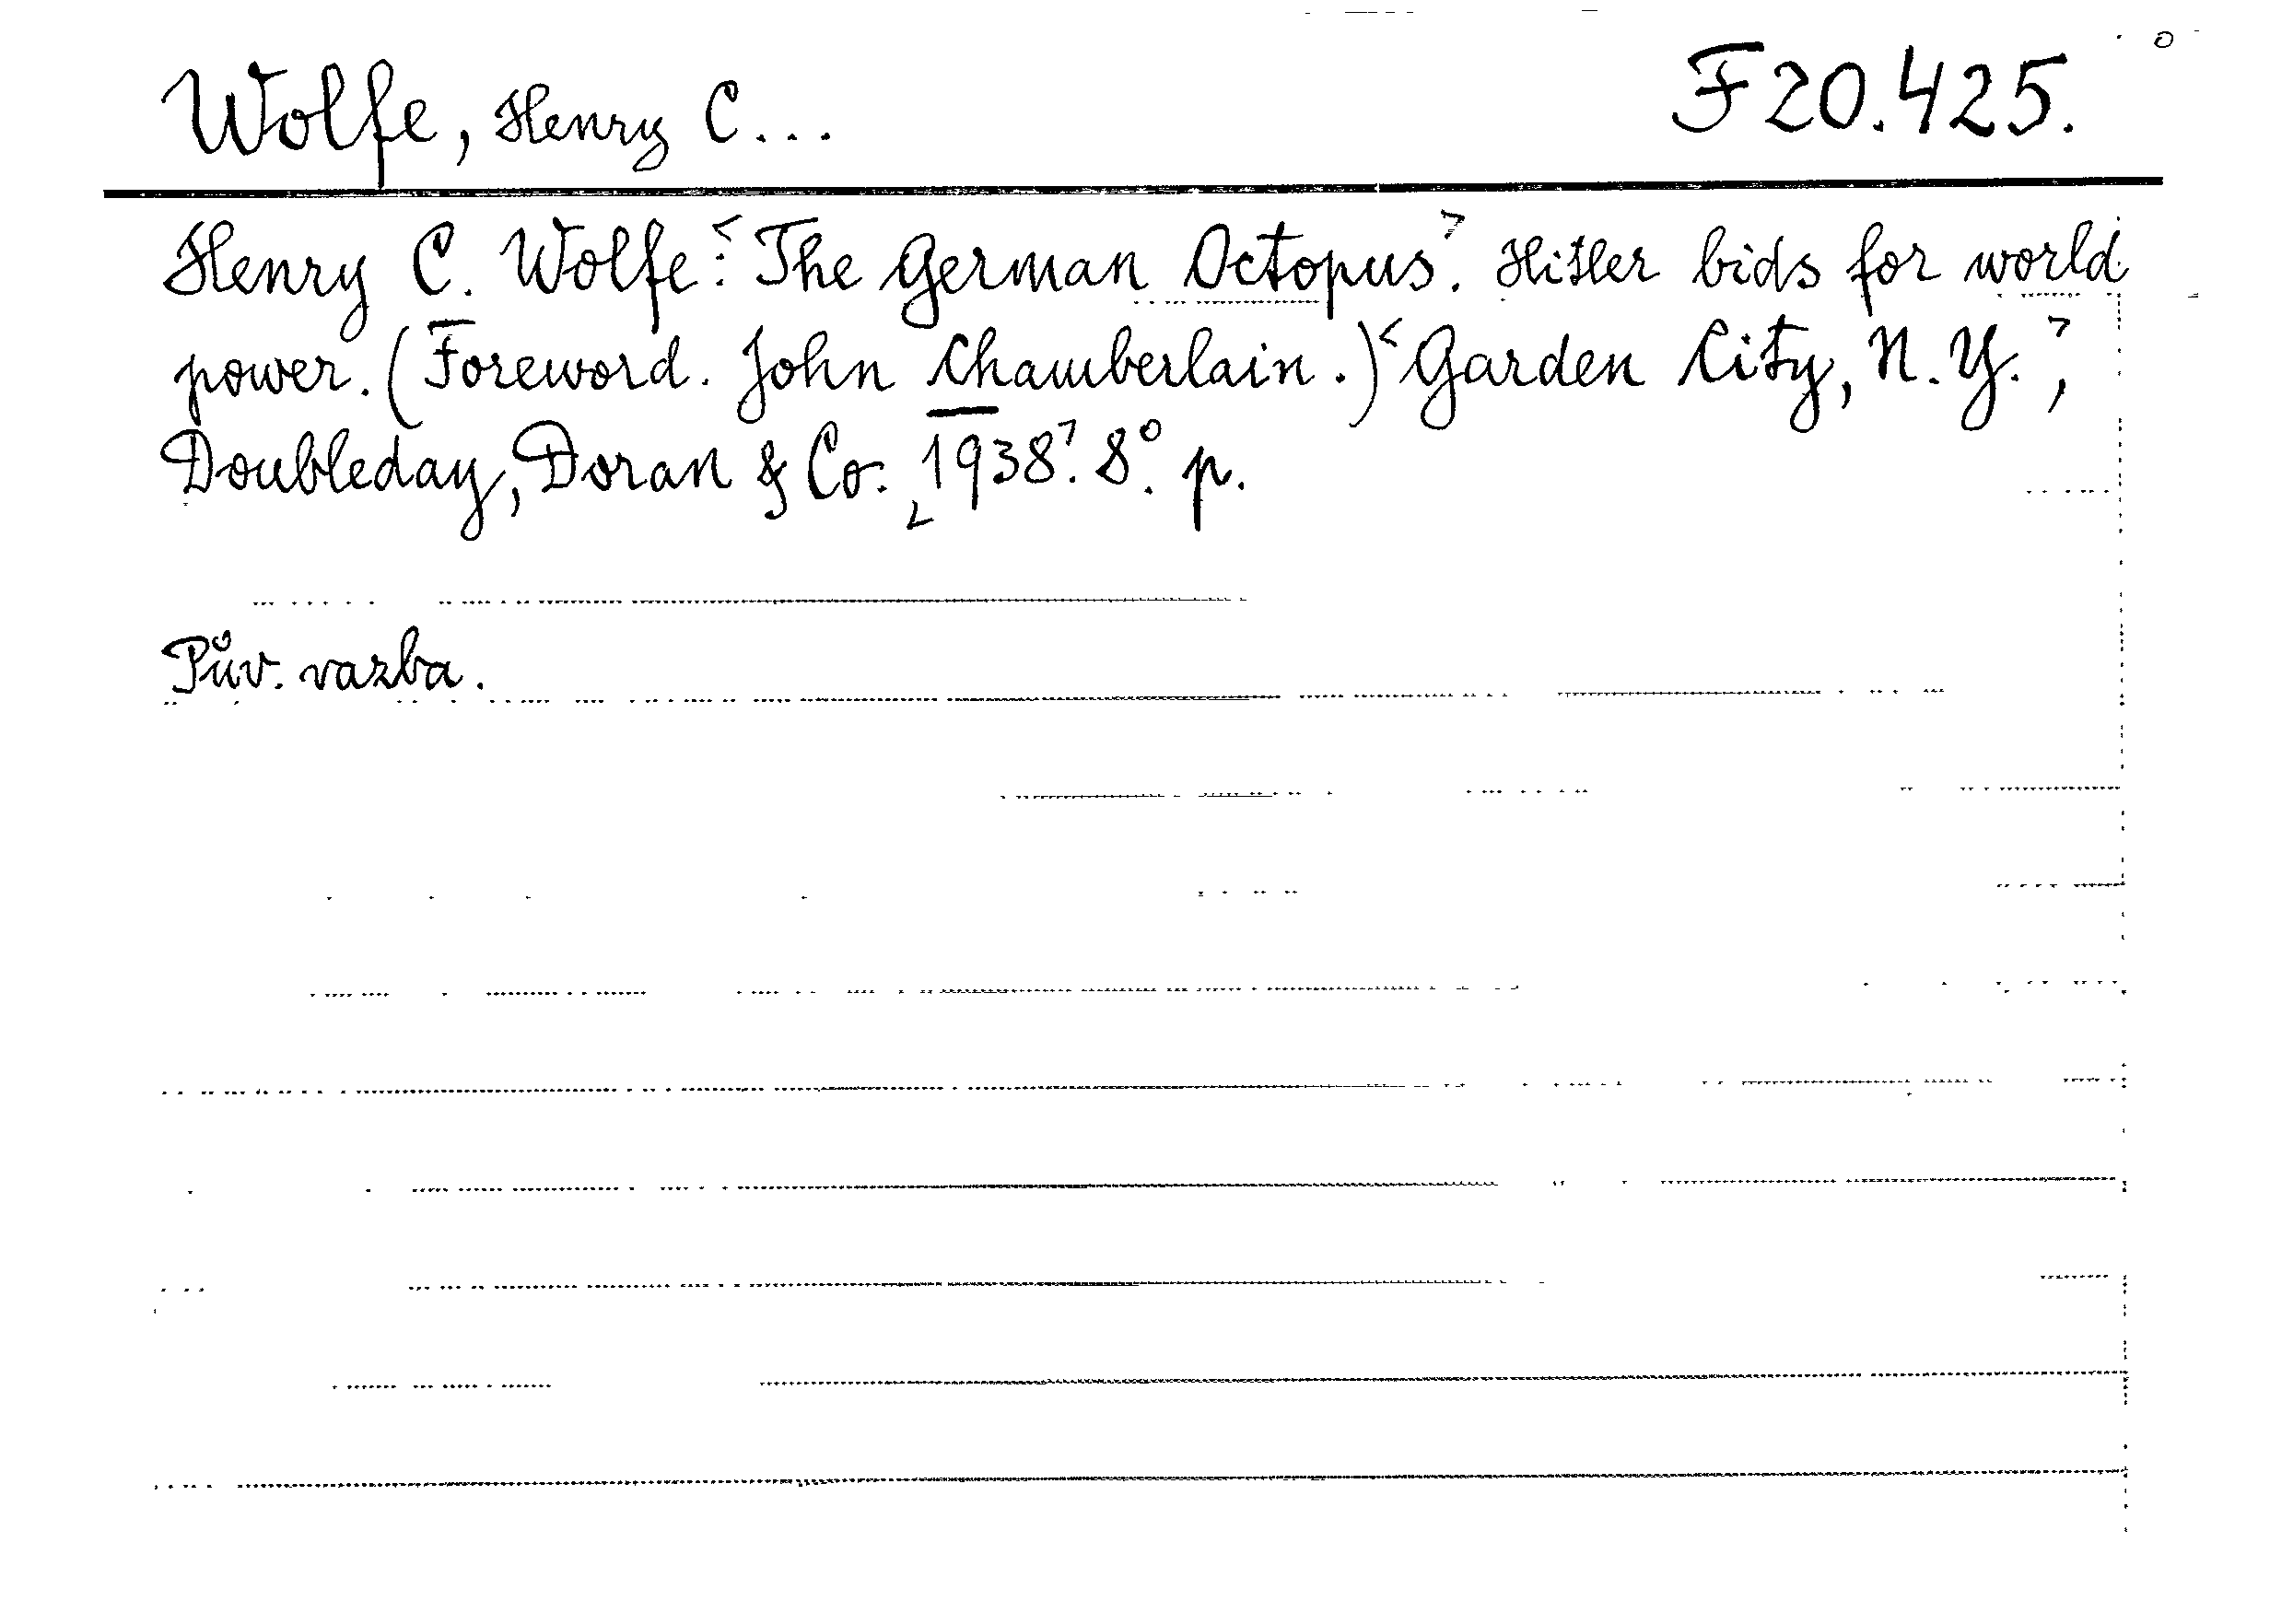 Wolfe, Henry C... F 20.425.
Henry C. Wolfe: <The German Octopus>. Hitler bids for world
power. (Foreword. John Chamberlain.) <Garden City, N. Y.>,
Doubleday, Doran & Co. [1938]. 8°. p.
Pův. vazba.